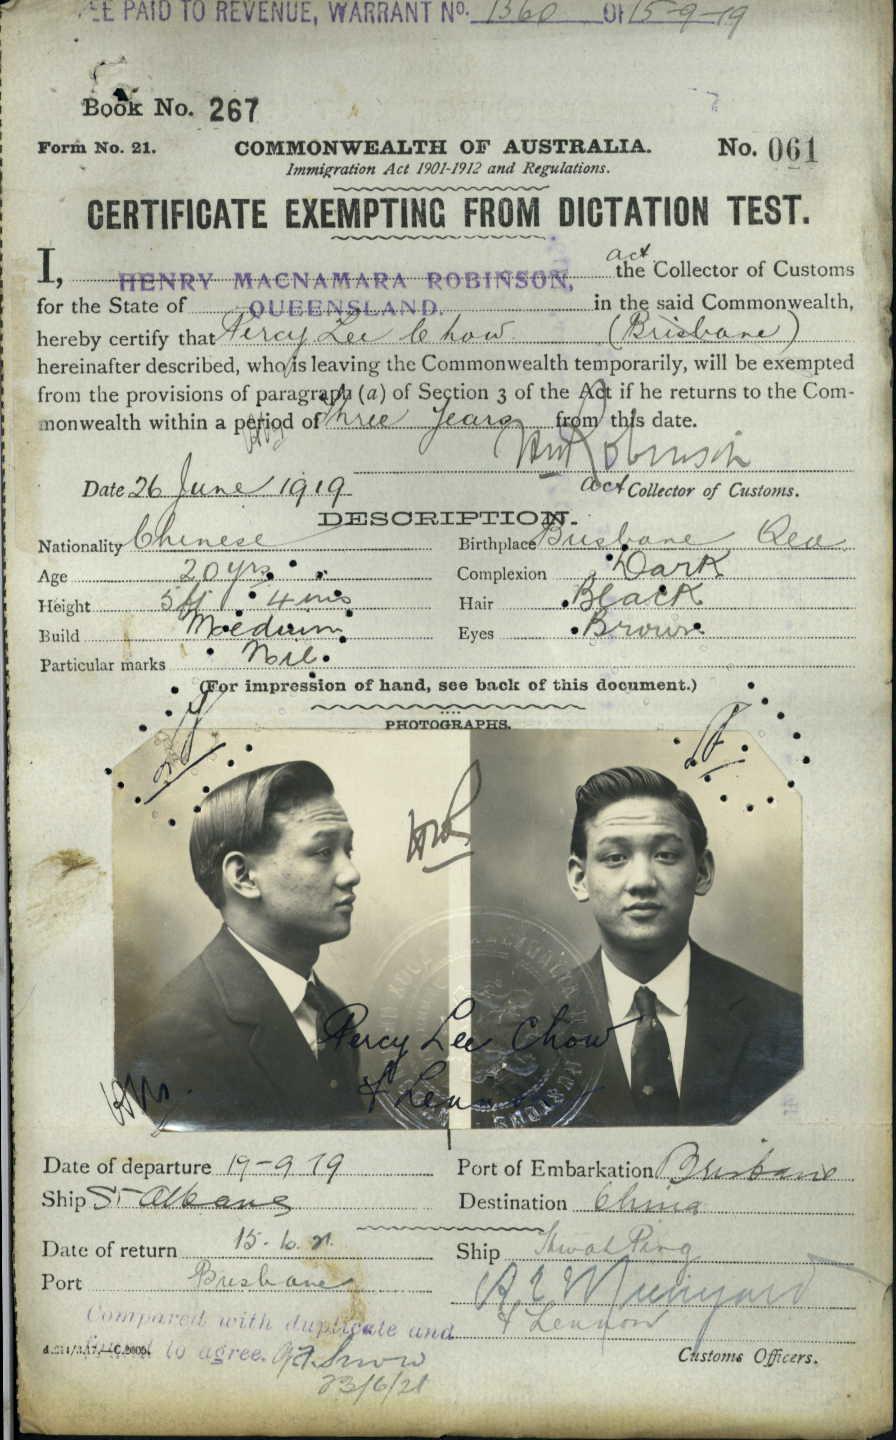 FEE PAID TO REVENUE, WARRANT No. 1360 OF 15-9-19
Book No. 267
Form No. 21. COMMONWEALTH OF AUSTRALIA. No. 061
Immigration Act 1901-1912 and Regulations.
CERTIFICATE EXEMPTING FROM DICTATION TEST.
act
I, HENRY MACNAMARA ROBINSON, the Collector of Customs
for the State of QUEENSLAND. in the said Commonwealth,
hereby certify that Percy Lee Chow (Brisbane)
hereinafter described, who is leaving the Commonwealth temporarily, will be exempted
from the provisions of paragraph (a) of Section 3 of the Act if he returns to the Com-
monwealth within a period of Three Years from this date.
HMRobinson
Date 26 June 1919 act Collector of Customs.
DESCRIPTION.
Nationality Chinese Birthplace Brisbane
Age 20 yrs Complexion Dark
Height 5ft 4 ins Hair Black
Build Medium Eyes Brown
Particular marks Nil
(For impression of hand, see back of this document.)
PHOTOGRAPHS.
HMR
Percy Lee Chow
Lennon
Date of departure 19-9-19 Port of Embarkation Brisbane
Ship St Albans Destination China
Date of return 15.6.21 Ship Hwah Ping
Port Brisbane
Compared with duplicate and
Lennon
found to agree.
23/6/21
Customs Officers.